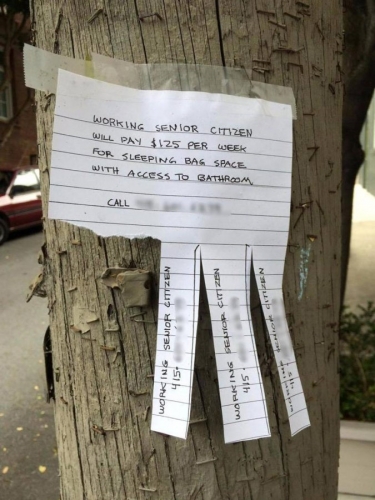 WORKING SENIOR CITIZEN
WILL PAY $125 PER WEEK
FOR SLEEPING BAG SPACE
WITH ACCESS TO BATHROOM
CALL
WORKING SENIOR CITIZEN
415-
WORKING SENIOR CITIZEN
415
WORKING SENIOR CITIZEN
415